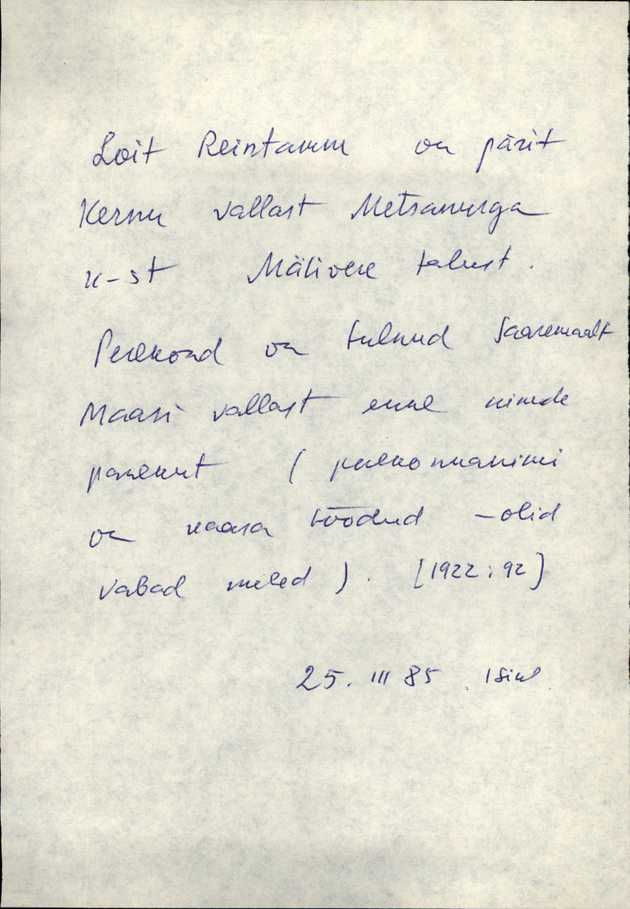 Loit Reintamm on pärit
Kernu vallast Metsanurga
k-st Mälivere talust.
Perekond on tulnud Saaremaalt
Maasi vallast enne nimede
panekut (perekonnanimi
on kaasa toodud - olid
vabad mehed). [1922:92]
25. III 85